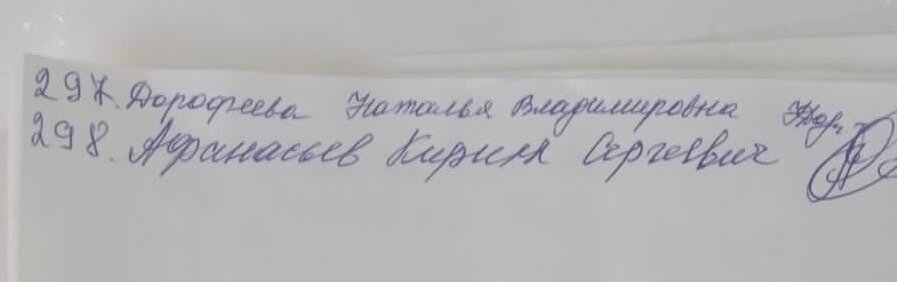 297. Дорофеева Наталья Владимировна
298. Афанасьев Кирилл Сергеевич